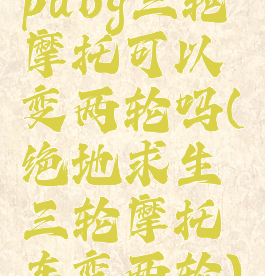 pubg三轮
摩托可以
变两轮吗(
绝地求生
三轮摩托
车变两轮)